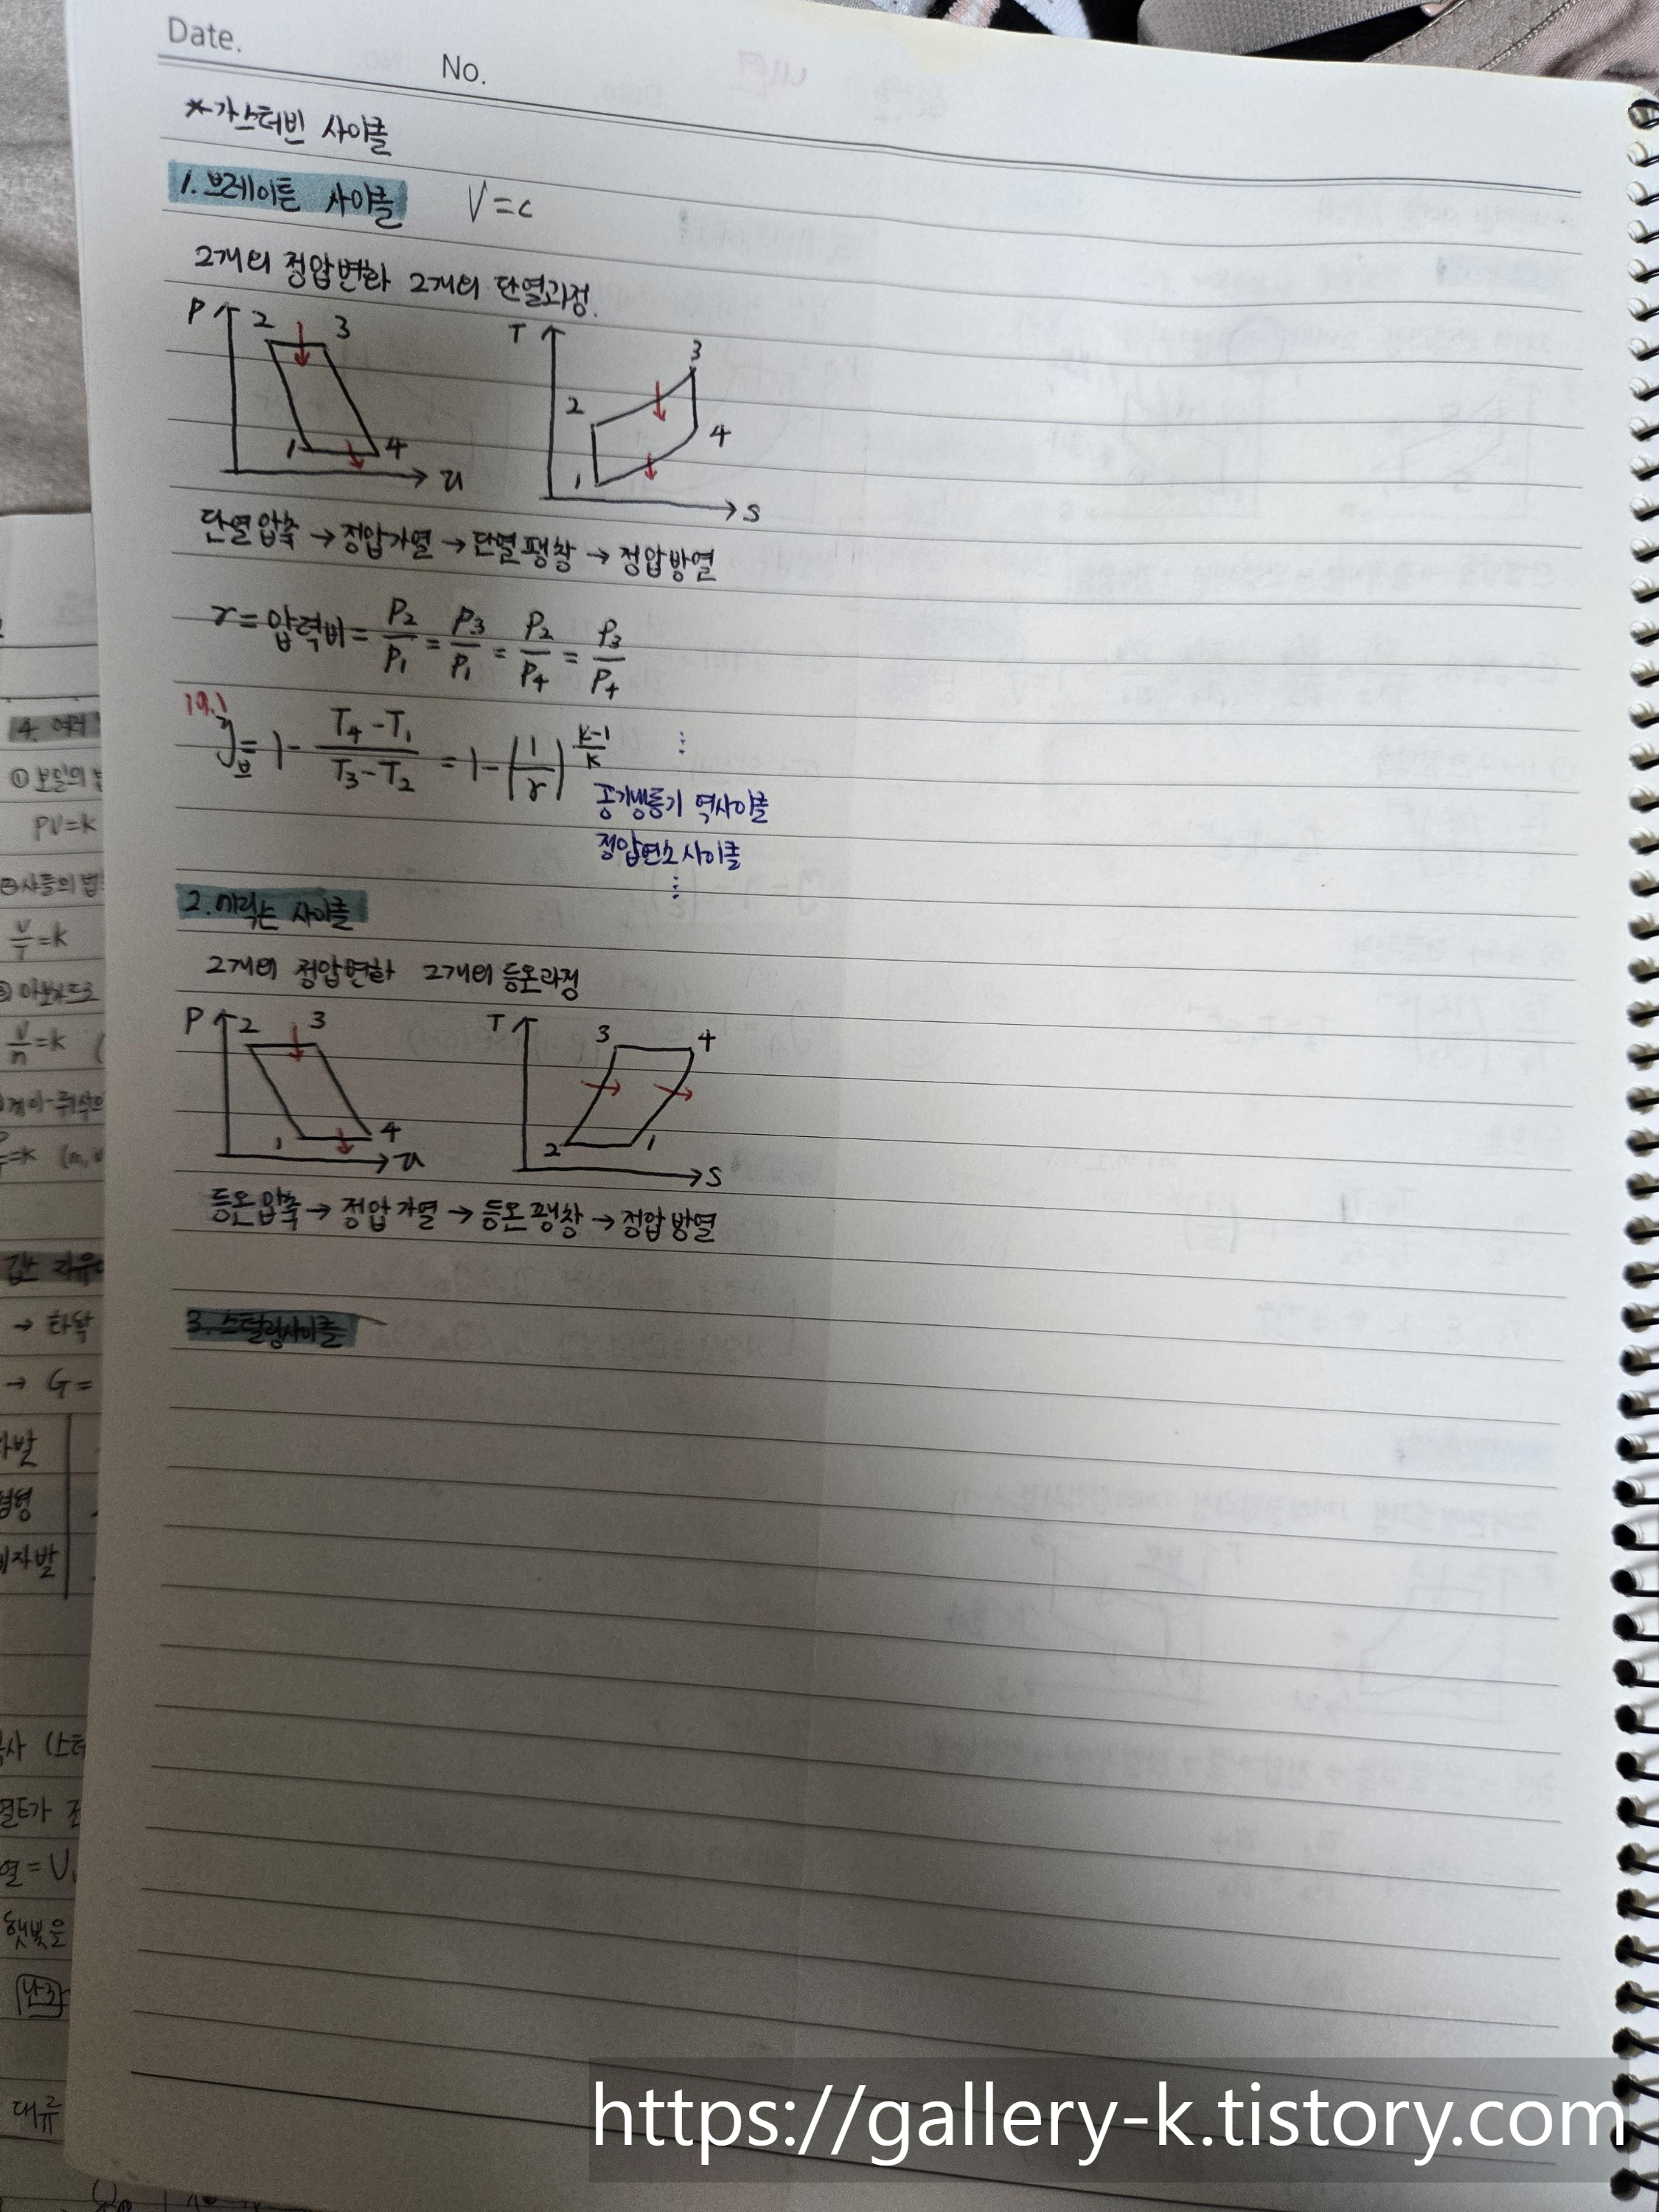 Date.
No.
*가스터빈 사이클
1. 브레이튼 사이클 V=c
2개의 정압변화 2개의 단열과정.
P 2 3 1 4 v
T 2 3 4 1 s
단열압축 → 정압가열 → 단열팽창 → 정압방열
r = 압력비 = P2/P1 = P3/P1 = P2/P4 = P3/P4
19.1
η브 = 1 - (T4-T1)/(T3-T2) = 1 - (1/r)^((k-1)/k)
공기냉동기 역사이클
정압연소 사이클
2. 에릭슨 사이클
2개의 정압변화 2개의 등온과정
P 2 3 1 4 v
T 3 4 2 1 s
등온압축 → 정압가열 → 등온팽창 → 정압방열
3. 스털링사이클
4. 여러
① 보일의 법
PV=k
② 샤를의 법
V/T=k
V/n=k (
→ G=
대류
https://gallery-k.tistory.com